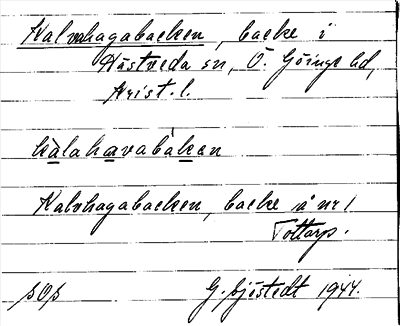 Kalvahagabacken, backe i
Hästveda sn, Ö. Göinge hd,
Krist. l.
kàlahavabàken
Kalvhagabacken, backe å nr 1
Tottarp.
SOS G. Sjöstedt 1944.